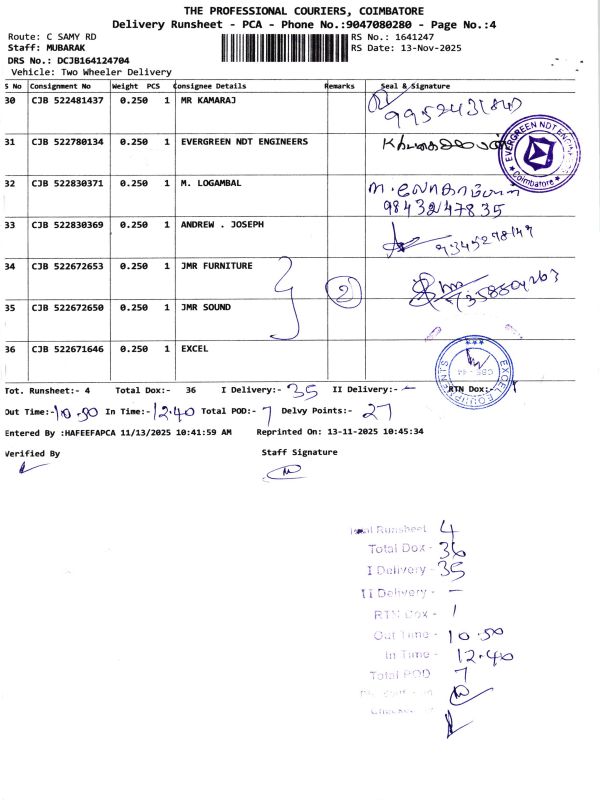 THE PROFESSIONAL COURIERS, COIMBATORE
Delivery Runsheet - PCA - Phone No.:9047080280 - Page No.:4
Route: C SAMY RD RS No.: 1641247
Staff: MUBARAK RS Date: 13-Nov-2025
DRS No.: DCJB164124704
Vehicle: Two Wheeler Delivery
S No Consignment No Weight PCS Consignee Details Remarks Seal & Signature
30 CJB 522481437 0.250 1 MR KAMARAJ
31 CJB 522780134 0.250 1 EVERGREEN NDT ENGINEERS
EVERGREEN NDT ENGINEERS
Coimbatore
32 CJB 522830371 0.250 1 M. LOGAMBAL
9843247835
33 CJB 522830369 0.250 1 ANDREW . JOSEPH
34 CJB 522672653 0.250 1 JMR FURNITURE
2
35 CJB 522672650 0.250 1 JMR SOUND
36 CJB 522671646 0.250 1 EXCEL
EXCEL EQUIPMENTS
Tot. Runsheet:- 4 Total Dox:- 36 I Delivery:- 35 II Delivery:- - RTN Dox:- 1
Out Time:-10.50 In Time:-12.40 Total POD:- 7 Delvy Points:- 27
Entered By :HAFEEFAPCA 11/13/2025 10:41:59 AM Reprinted On: 13-11-2025 10:45:34
Verified By Staff Signature
Total Runsheet 4
Total Dox - 36
I Delivery - 35
II Delivery - -
RTN Dox - 1
Out Time - 10.50
In Time - 12.40
Total POD 7